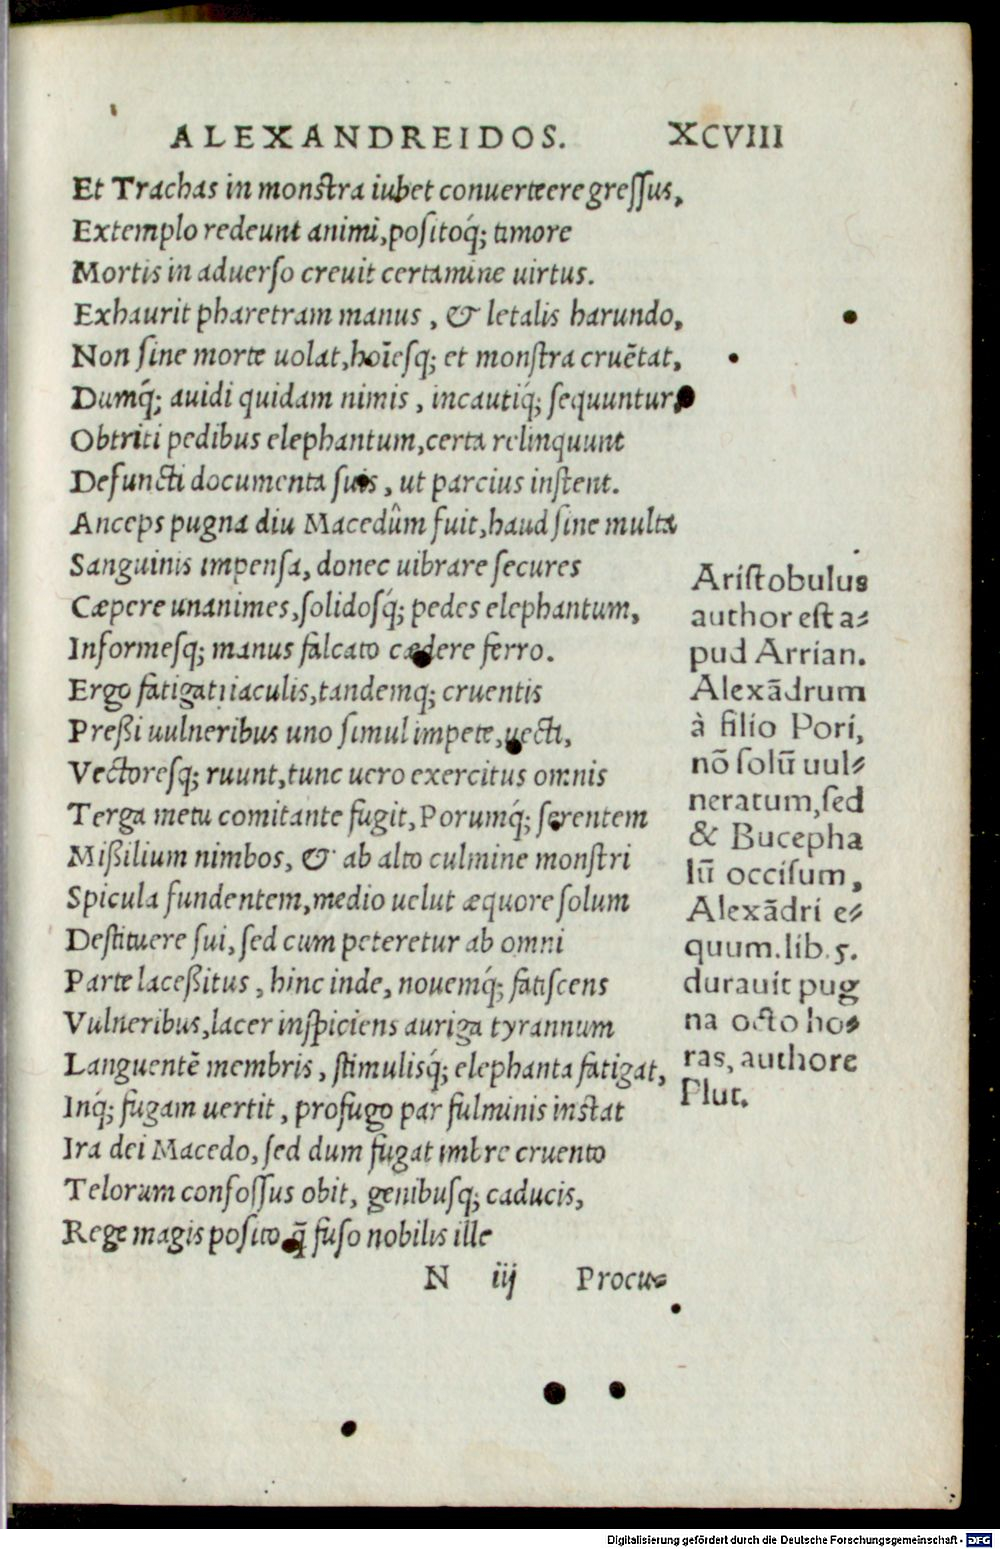 ALEXANDREIDOS. XCVIII
Et Trachas in monstra iubet conuerteere gressus,
Extemplo redeunt animi, positoq́; timore
Mortis in aduerso creuit certamine uirtus.
Exhaurit pharetram manus, & letalis harundo,
Non sine morte uolat, hoı̄esq; et monstra cruẽtat,
Dumq́; auidi quidam nimis, incautiq́; sequuntur,
Obtriti pedibus elephantum, certa relinquunt
Defuncti documenta suis, ut parcius instent.
Anceps pugna diu Macedûm fuit, haud sine multa
Sanguinis impensa, donec uibrare secures
Cæpere unanimes, solidosq́; pedes elephantum,
Informesq; manus falcato cædere ferro.
Ergo fatigati iaculis, tandemq; cruentis
Preßi uulneribus uno simul impete, uecti,
Vectoresq; ruunt, tunc uero exercitus omnis
Terga metu comitante fugit, Porumq́; serentem
Mißilium nimbos, & ab alto culmine monstri
Spicula fundentem, medio uelut æquore solum
Destituere sui, sed cum peteretur ab omni
Parte laceßitus, hinc inde, nouemq́; fatiscens
Vulneribus, lacer inspiciens auriga tyrannum
Languentẽ membris, stimulisq́; elephanta fatigat,
Inq́; fugam uertit, profugo par fulminis instat
Ira dei Macedo, sed dum fugat imbre cruento
Telorum confossus obit, genibusq; caducis,
Rege magis posito q̃ fuso nobilis ille
N iij Procu⸗
Aristobulus
author est a⸗
pud Arrian.
Alexãdrum
à filio Pori,
nõ solũ uul⸗
neratum, sed
& Bucepha
lũ occisum,
Alexãdri e⸗
quum. lib. 5.
durauit pug
na octo ho⸗
ras, authore
Plut.
Digitalisierung gefördert durch die Deutsche Forschungsgemeinschaft - DFG